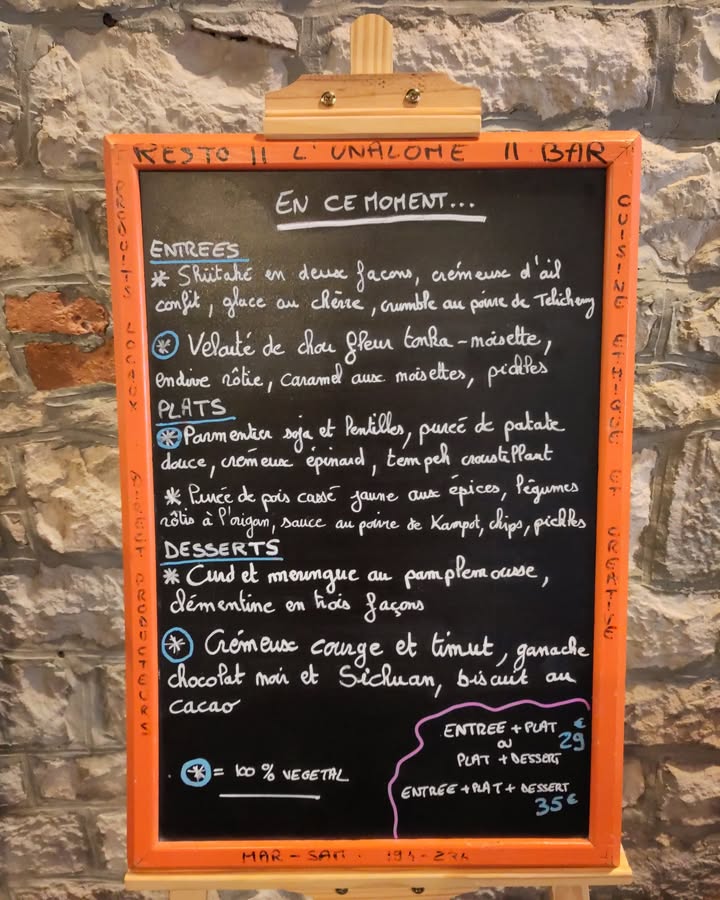 RESTO || L'UNALOME || BAR
PRODUITS LOCAUX
DIRECT PRODUCTEURS
CUISINE ETHIQUE ET CREATIVE
EN CE MOMENT...
ENTREES
* Shiitaké en deux façons, crémeux d'ail
confit, glace au chèvre, crumble au poivre de Telicheny
* Velouté de chou fleur tonka-noisette,
endive rôtie, caramel aux noisettes, pickles
PLATS
* Parmentier soja et lentilles, purée de patate
douce, crémeux épinard, tempeh croustillant
* Purée de pois cassé jaune aux épices, légumes
rôtis à l'origan, sauce au poivre de Kampot, chips, pickles
DESSERTS
* Curd et meringue au pamplemousse,
clémentine en trois façons
* Crémeux courge et timut, ganache
chocolat noir et Sichuan, biscuit au
cacao
ENTREE + PLAT
OU
PLAT + DESSERT
29€
ENTREE + PLAT + DESSERT
35€
* = 100 % VEGETAL
MAR - SAM : 19h - 23h